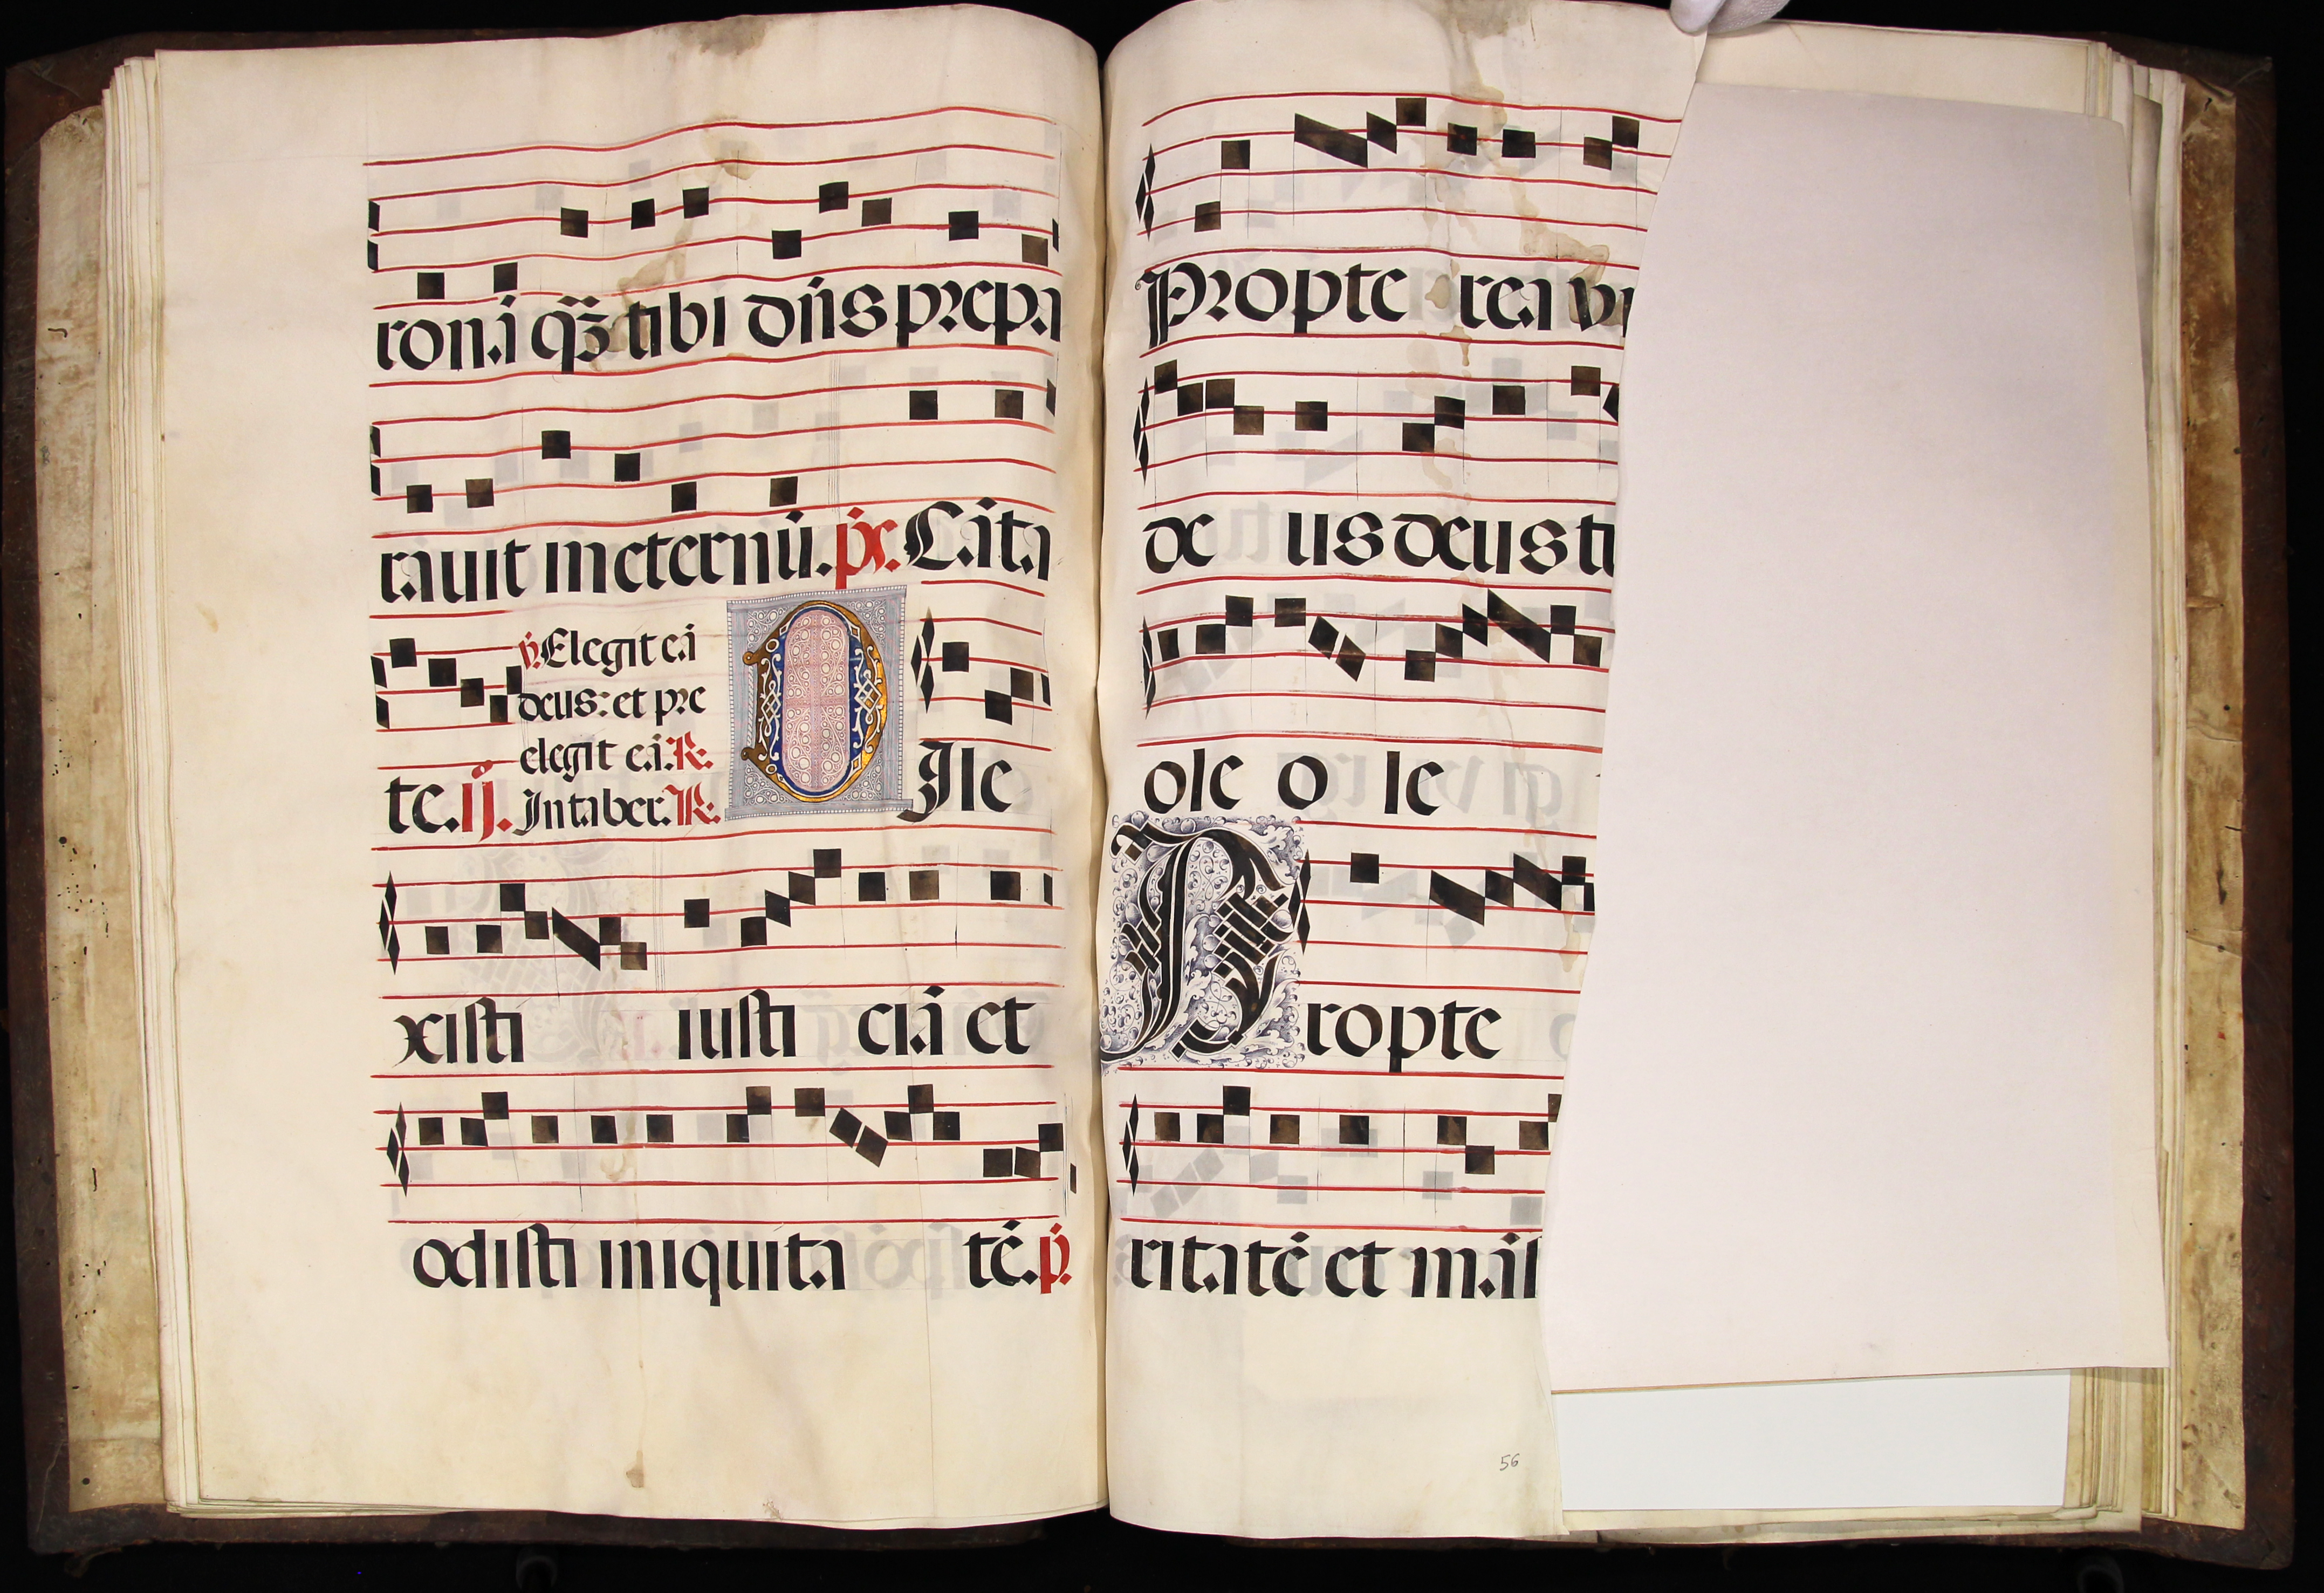 ronā qȝ tibi dn̄s prepa
rauit in eternū. pš. Cāta
te. ij. ℣. Elegit eā
deus: et pre
elegit eā. ℟.
In taber. ℟.
DIle
xisti iusti ciā et
odisti iniquita tē. ṗ.
Propte rea
de us deus
ole o le
Propte
ritatē et
56